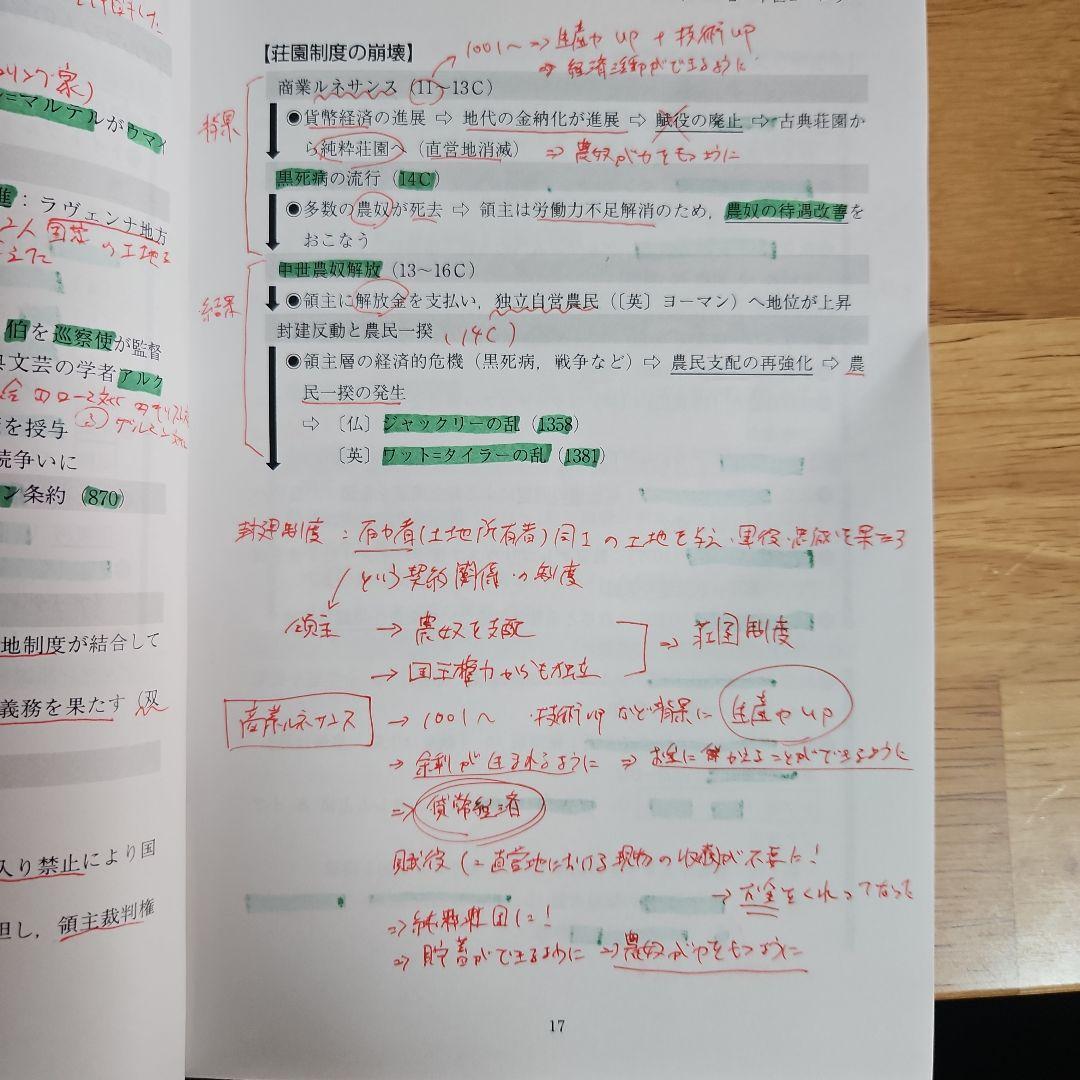 リング家)
=マルテルがウマイ
進：ラヴェンナ地方
伯を巡察使が監督
典文芸の学者アルク
を授与
続争いに
ン条約 (870)
地制度が結合して
義務を果たす (双
入り禁止により国
担し，領主裁判権
【荘園制度の崩壊】
1001〜 ⇒ 生産力 up + 技術 up
⇒ 経済活動ができるように
商業ルネサンス (11〜13C)
背景
◉貨幣経済の進展 ⇨ 地代の金納化が進展 ⇨ 賦役の廃止 ⇨ 古典荘園か
ら純粋荘園へ (直営地消滅) ⇒ 農奴が力をもつように
黒死病の流行 (14C)
◉多数の農奴が死去 ⇨ 領主は労働力不足解消のため，農奴の待遇改善を
おこなう
中世農奴解放 (13〜16C)
結果
◉領主に解放金を支払い，独立自営農民 (〔英〕ヨーマン) へ地位が上昇
封建反動と農民一揆 (14C)
◉領主層の経済的危機 (黒死病，戦争など) ⇨ 農民支配の再強化 ⇨ 農
民一揆の発生
⇨ 〔仏〕ジャックリーの乱 (1358)
〔英〕ワット=タイラーの乱 (1381)
封建制度：有力者(土地所有者)同士の土地を与え・軍役・忠誠を果たす
という契約関係の制度
領主 → 農奴を支配
→ 国王権力からも独立
⇒ 荘園制度
商業ルネサンス → 1001〜 技術upなど背景に 生産力up
→ 余剰が生まれるように ⇒ お金にかえることができるように
⇒ 貨幣経済
賦役 (=直営地における現物の収穫)が不要に!
→ お金をくれってなった
⇒ 純粋荘園に!
⇒ 貯蓄ができるように ⇒ 農奴が力をもつように
17